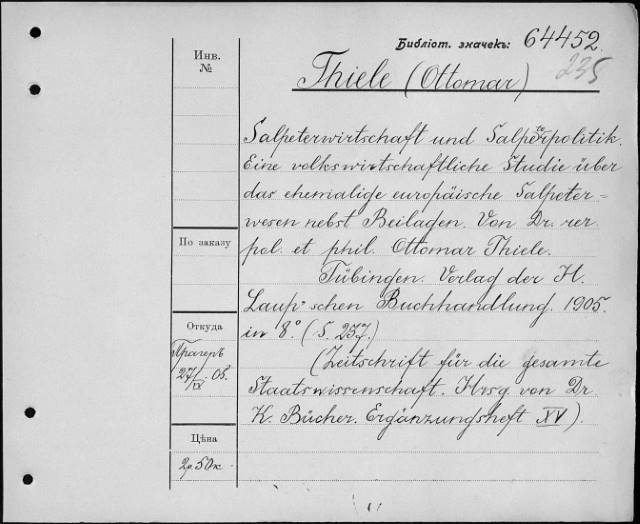 Библiот. значекъ: 64452
235
Инв.
№
Thiele (Ottomar)
Salpeterwirtschaft und Salpeterpolitik.
Eine volkswirtschaftliche Studie über
das ehemalige europäische Salpeter=
wesen nebst Beilagen. Von Dr. rer.
pol. et phil. Ottomar Thiele.
Tübingen. Verlag der H.
Laupp'schen Buchhandlung. 1905.
in 8.° (S. 237.)
(Zeitschrift für die gesamte
Staatswissenschaft. Hrsg. von Dr
K. Bücher. Ergänzungsheft XV).
По заказу
Откуда
Прагеръ
27/IX - 08.
Цѣна
2р. 50к.